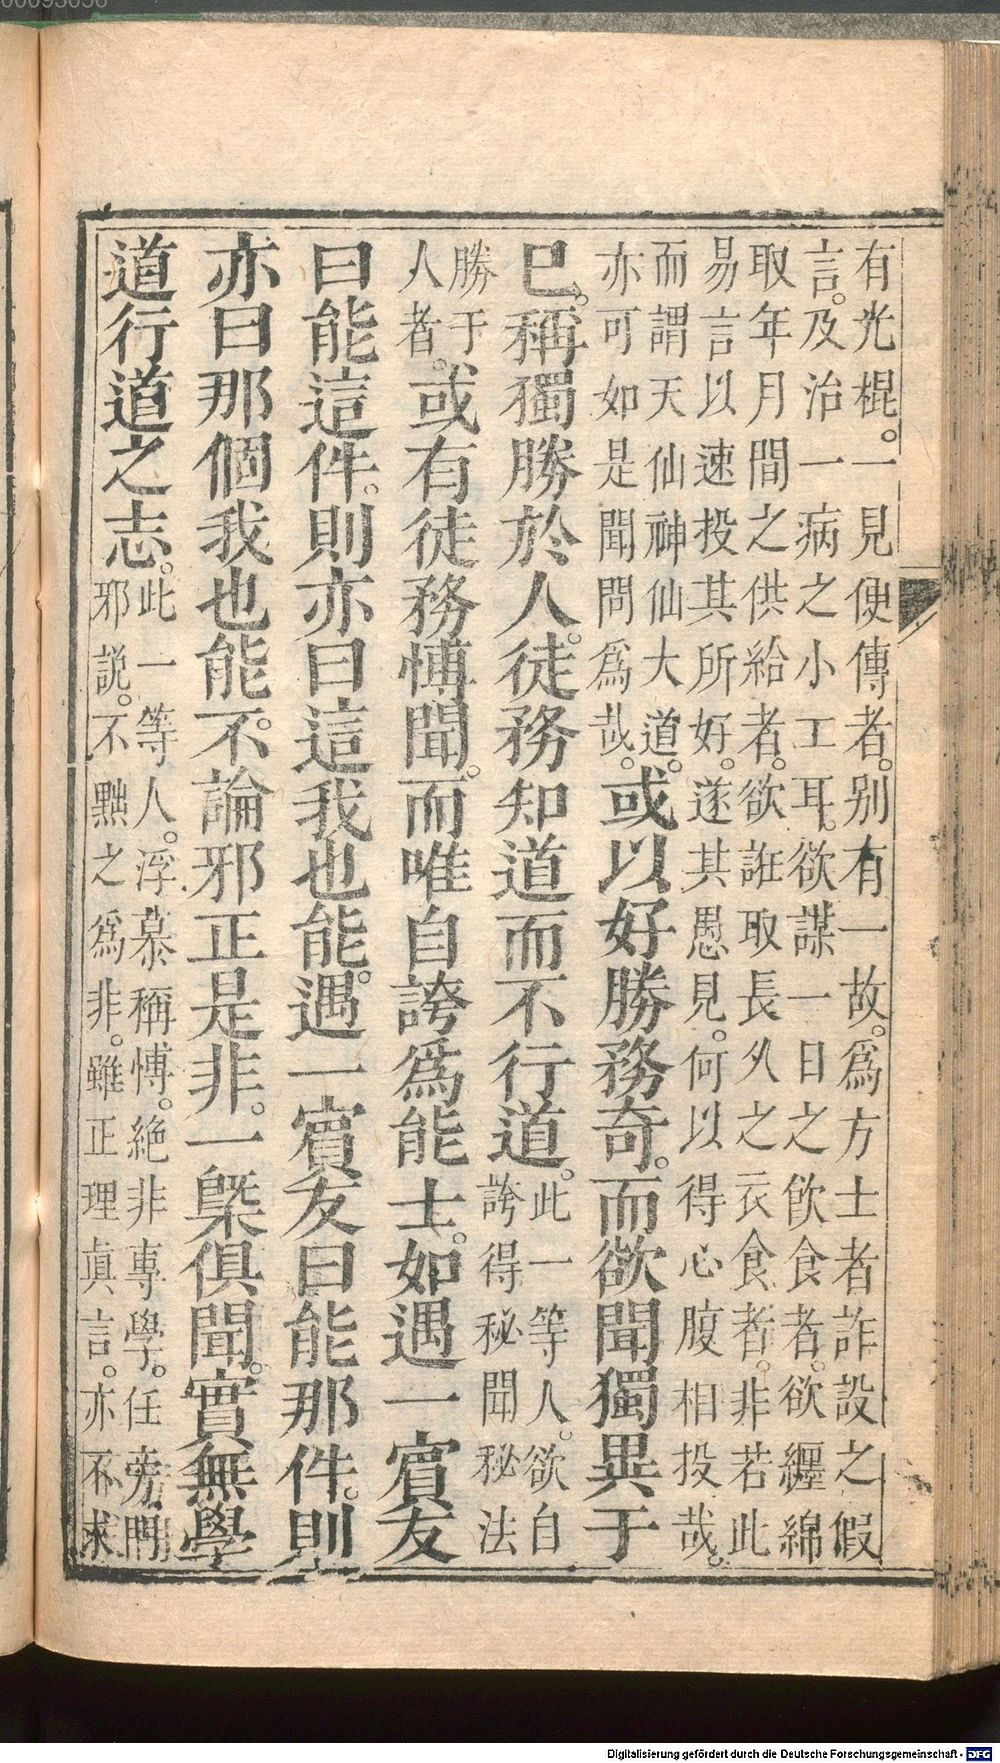 00093056
有光棍。一見便傳者。别有一故。爲方士者詐設之假
言。及治一病之小工耳。欲謀一日之飮食者。欲纒綿
取年月間之供給者。欲誑取長久之衣食者。非若此
易言以速投其所好。遂其愚見。何以得心腹相投哉。
而謂天仙神仙大道。
亦可如是聞問爲哉。或以好勝務奇。而欲聞獨異于
已。稱獨勝於人。徒務知道而不行道。此一等人。欲自
誇得秘聞秘法
勝于
人者。或有徒務愽聞。而唯自誇爲能士。如遇一賓友
曰能這件。則亦曰這我也能。遇一賓友曰能那件。則
亦曰那個我也能。不論邪正是非。一槩俱聞。實無學
道行道之志。此一等人。浮慕稱愽。絕非專學。任旁門
邪説。不黜之爲非。雖正理眞言。亦不求
Digitalisierung gefördert durch die Deutsche Forschungsgemeinschaft - DFG